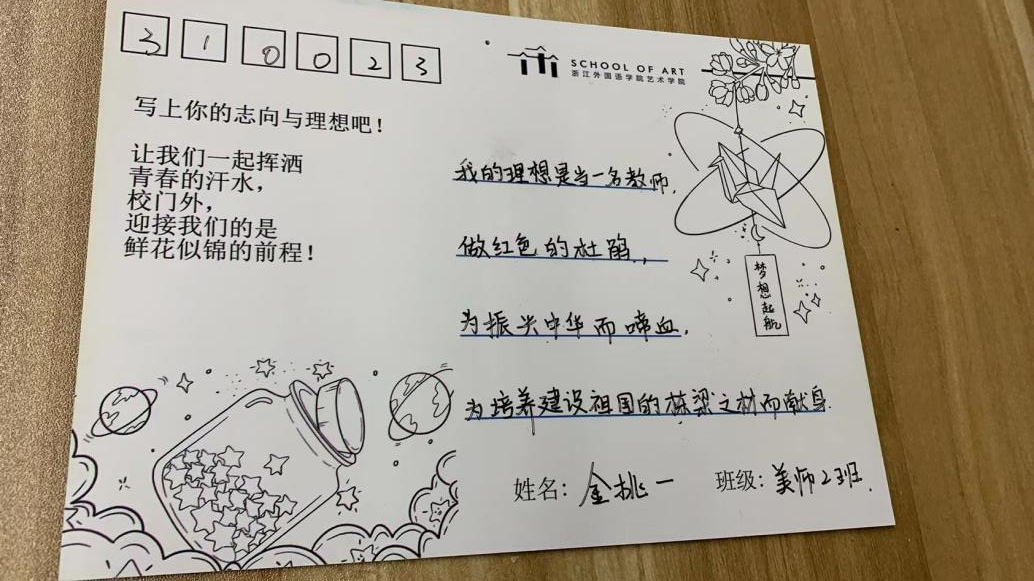 310023
SCHOOL OF ART
浙江外国语学院艺术学院
写上你的志向与理想吧！
让我们一起挥洒
青春的汗水，
校门外，
迎接我们的是
鲜花似锦的前程！
我的理想是当一名教师，
做红色的杜鹃，
为振兴中华而啼血，
为培养建设祖国的栋梁之材而献身.
梦想起航
姓名：金挑一
班级：美师2班.